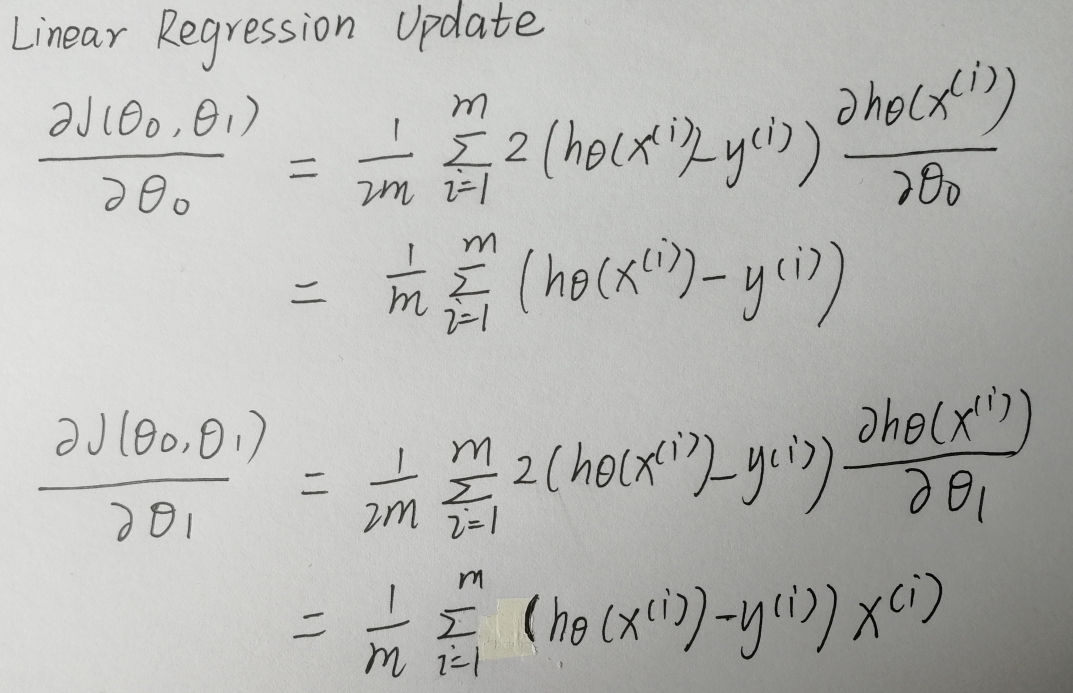 Linear Regression Update
∂J(θ₀,θ₁)/∂θ₀ = 1/2m Σᵢ₌₁ᵐ 2(hθ(x⁽ⁱ⁾)-y⁽ⁱ⁾) ∂hθ(x⁽ⁱ⁾)/∂θ₀
= 1/m Σᵢ₌₁ᵐ (hθ(x⁽ⁱ⁾)-y⁽ⁱ⁾)
∂J(θ₀,θ₁)/∂θ₁ = 1/2m Σᵢ₌₁ᵐ 2(hθ(x⁽ⁱ⁾)-y⁽ⁱ⁾) ∂hθ(x⁽ⁱ⁾)/∂θ₁
= 1/m Σᵢ₌₁ᵐ (hθ(x⁽ⁱ⁾)-y⁽ⁱ⁾) x⁽ⁱ⁾